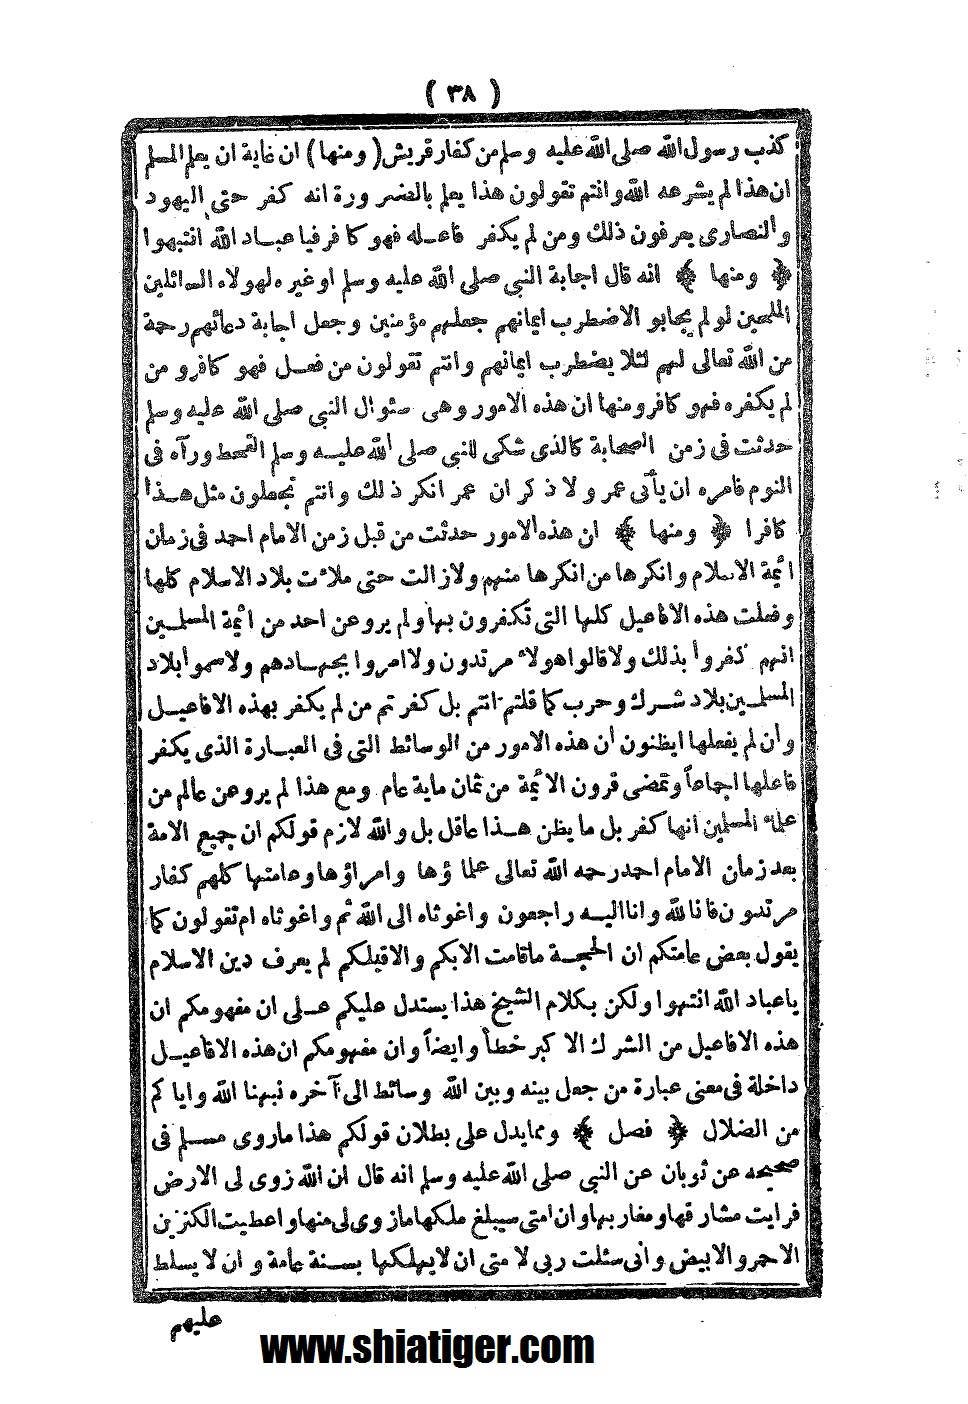 ( ٣٨ )
كذب رسول الله صلى الله عليه وسلم من كفار قريش ( ومنها ) ان غاية ان يعلم المسلم
ان هذا لم يشرعه الله وانتم تقولون هذا يعلم بالضرورة انه كفر حتى اليهود
والنصارى يعرفون ذلك ومن لم يكفر فاعله فهو كافر فيا عباد الله انتبهوا
﴿ ومنها ﴾ انه قال اجابة النبي صلى الله عليه وسلم او غيره لهولاء السائلين
الملحين لو لم يجابو الاضطرب ايمانهم جعلهم مؤمنين وجعل اجابة دعائهم رحمة
من الله تعالى لهم لئلا يضطرب ايمانهم وانتم تقولون من فعل فهو كافر و من
لم يكفره فهو كافر ومنها ان هذه الامور وهى سئوال النبي صلى الله عليه وسلم
حدثت فى زمن الصحابة كالذى شكى للنبي صلى الله عليه وسلم القحط ورآه فى
النوم فامره ان يأتى عمر ولا ذكر ان عمر انكر ذلك وانتم تجعلون مثل هذا
كافرا ﴿ ومنها ﴾ ان هذه الامور حدثت من قبل زمن الامام احمد فى زمان
ائمة الاسلام وانكرها من انكرها منهم ولا زالت حتى ملأت بلاد الاسلام كلها
وفعلت هذه الافاعيل كلها التى تكفرون بها ولم يرو عن احد من ائمة المسلمين
انهم كفروا بذلك ولا قالوا هولاء مرتدون ولا امروا بجهادهم ولا سموا بلاد
المسلمين بلاد شرك وحرب كما قلتم انتم بل كفرتم من لم يكفر بهذه الافاعيل
وأن لم يفعلها ايظنون أن هذه الامور من الوسائط التى فى العبارة الذى يكفر
فاعلها اجماعاً وتمضى قرون الائمة من ثمان ماية عام ومع هذا لم يرو عن عالم من
علماء المسلمين انها كفر بل ما يظن هذا عاقل بل والله لازم قولكم ان جميع الامة
بعد زمان الامام احمد رحمه الله تعالى علماؤها وامراؤها وعامتها كلهم كفار
مرتدون فانا لله وانا اليه راجعون واغوثاه الى الله ثم واغوثاه ام تقولون كما
يقول بعض عامتكم ان الحجة ما قامت الابكم والاقبلكم لم يعرف دين الاسلام
يا عباد الله انتبهوا ولكن بكلام الشيخ هذا يستدل عليكم على ان مفهومكم ان
هذه الافاعيل من الشرك الاكبر خطأ وايضاً وان مفهومكم ان هذه الافاعيل
داخلة فى معنى عبارة من جعل بينه وبين الله وسائط الى آخره نبهنا الله واياكم
من الضلال ﴿ فصل ﴾ ومما يدل على بطلان قولكم هذا ماروى مسلم فى
صحيحه عن ثوبان عن النبي صلى الله عليه وسلم انه قال ان الله زوى لى الارض
فرايت مشارقها ومغاربها وان امتى سيبلغ ملكها ما زوى لى منها واعطيت الكنزين
الاحمر والابيض وانى سئلت ربى لامتى ان لا يهلكها بسنة عامة و ان لا يسلط
عليهم
www.shiatiger.com